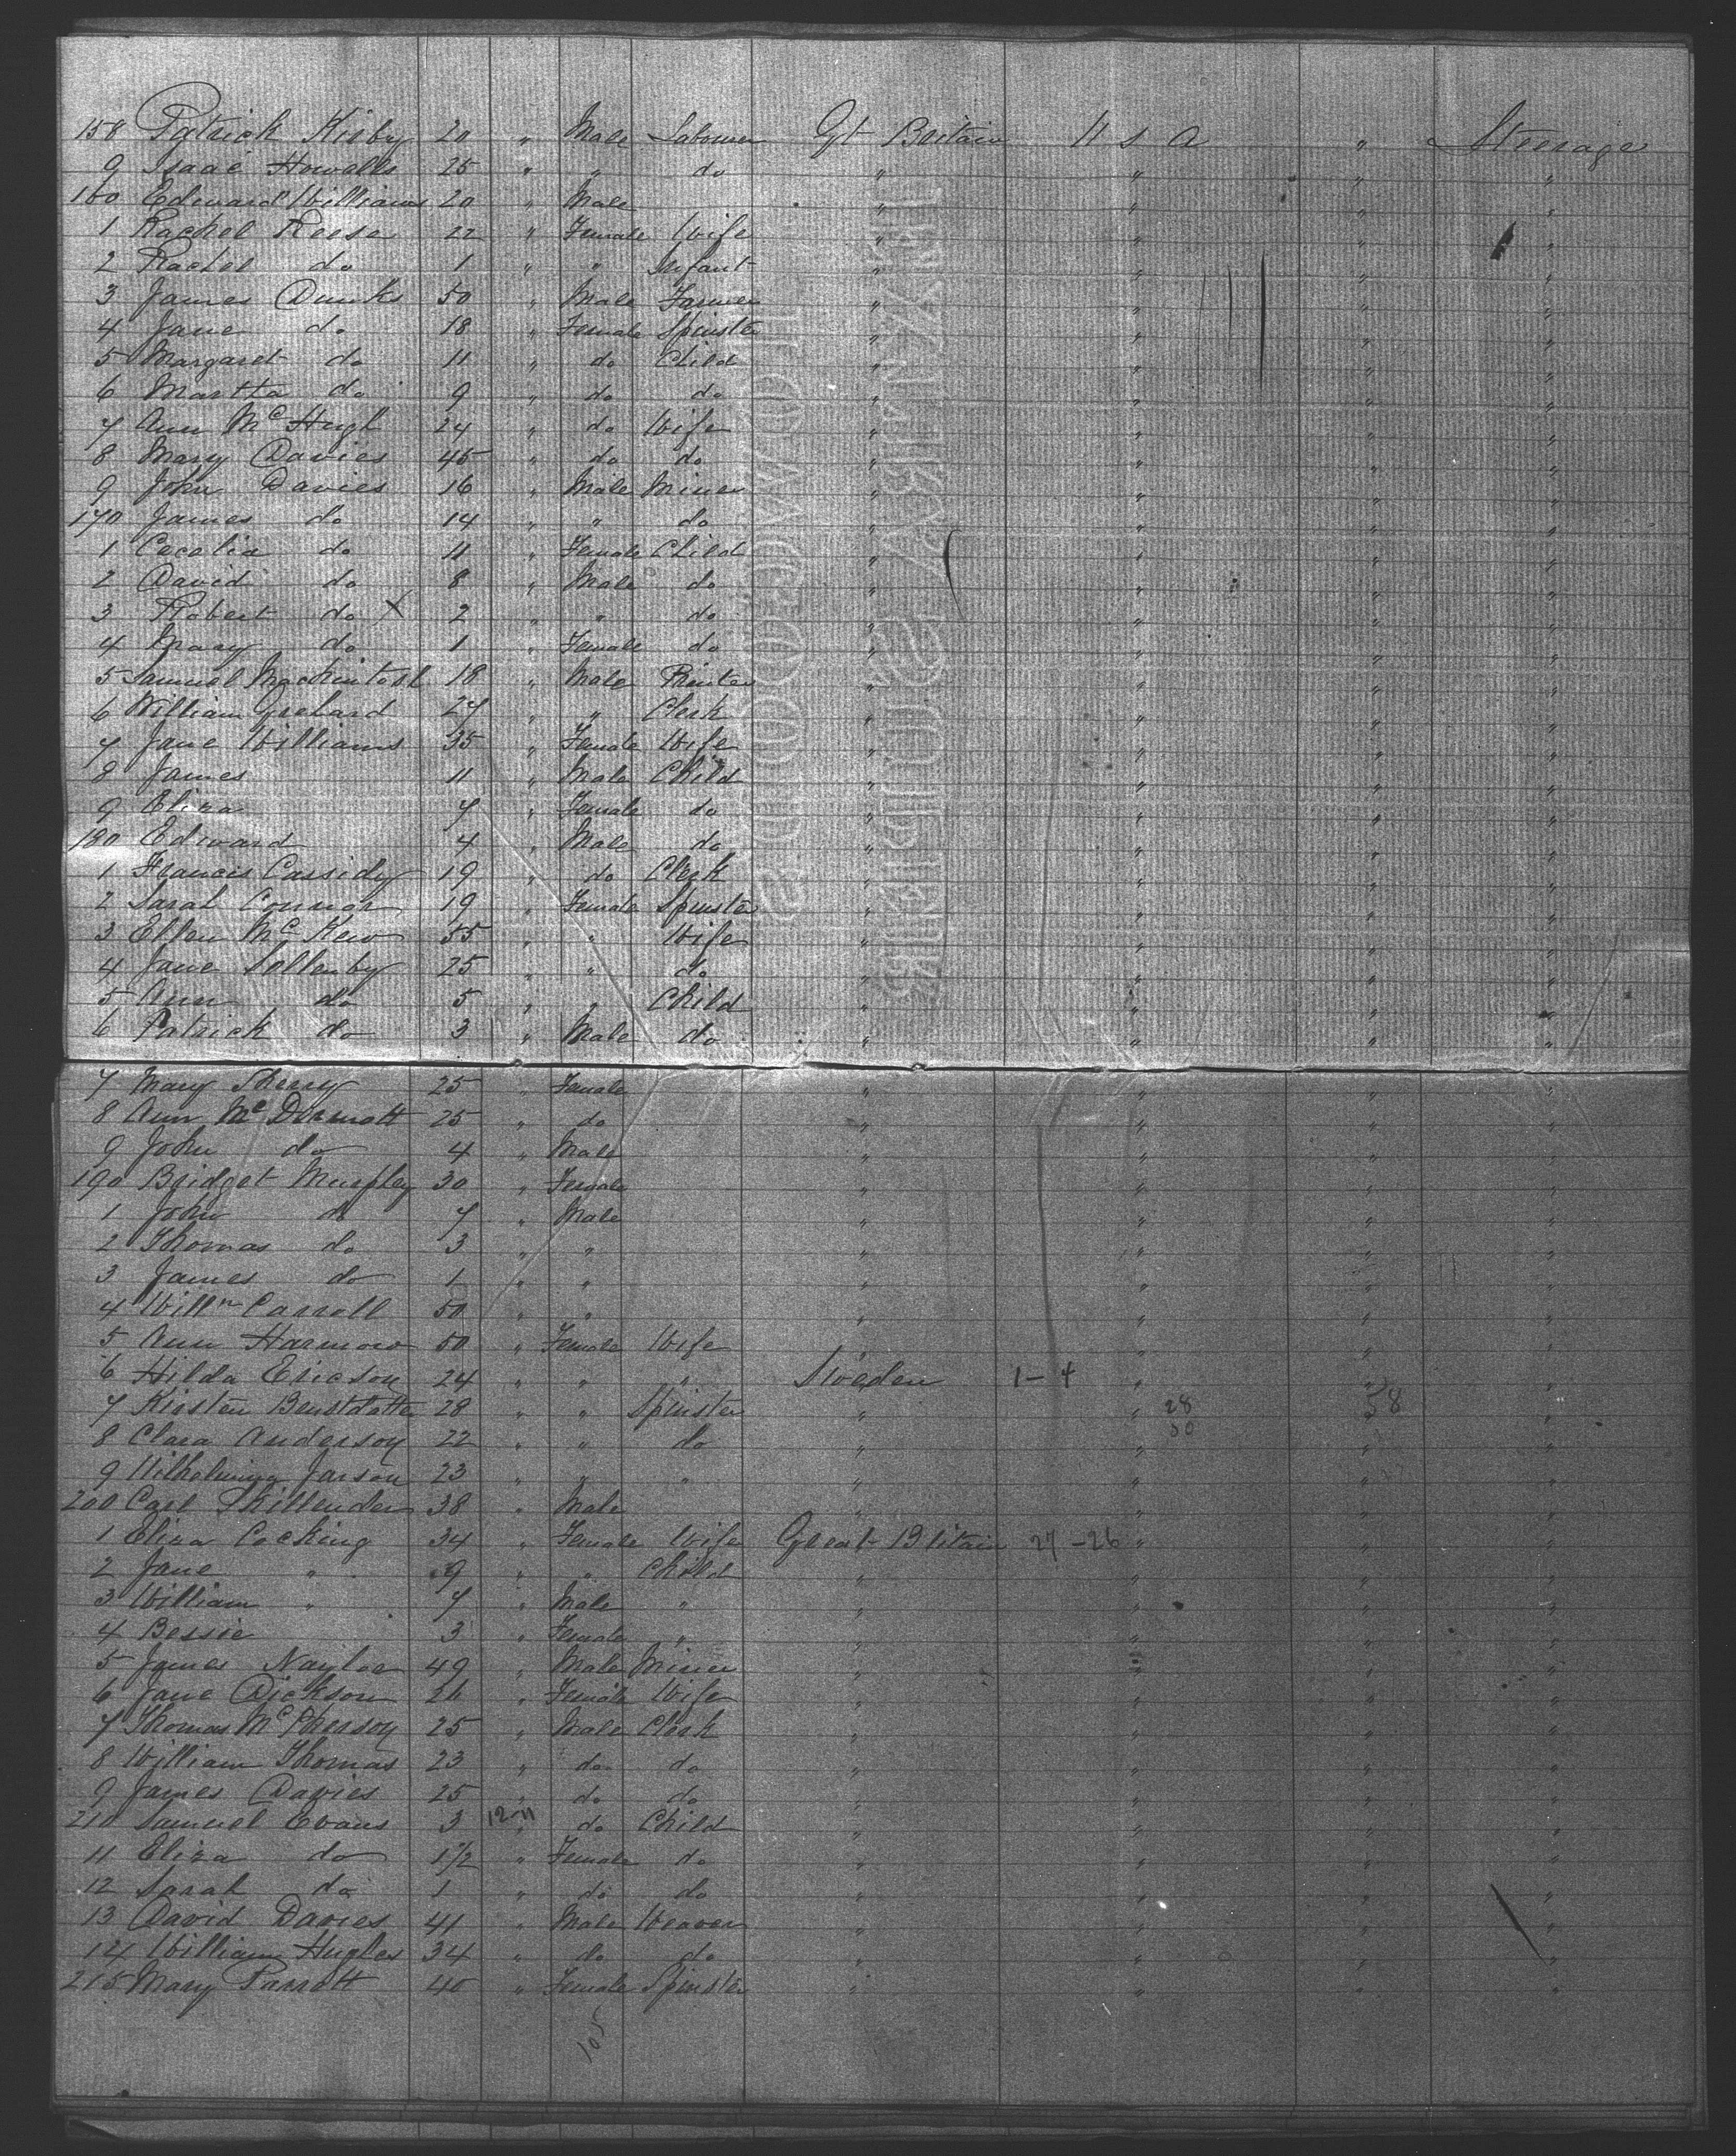 158 Patrick Kirby 20 " Male Labourer Gt Britain U S A " Steerage
9 Isaac Howells 25 " " do " " " "
160 Edward Williams 20 " Male " " " "
1 Rachel Reese 22 " Female Wife " " " "
2 Rachel do 1 " " Infant " " " "
3 James Dunks 50 " Male Farmer " " " "
4 Jane do 18 " Female Spinster " " " "
5 Margaret do 11 " do Child " " " "
6 Martha do 9 " do do " " " "
7 Ann McHugh 24 " do Wife " " " "
8 Mary Davies 45 " do do " " " "
9 John Davies 16 " Male Miner " " " "
170 James do 14 " " do " " " "
1 Cecelia do 11 " Female Child " " " "
2 David do 8 " Male do " " " "
3 Robert do X 2 " " do " " " "
4 Mary do 1 " Female do " " " "
5 Samuel Mackintosh 18 " Male Printer " " " "
6 William 27 " " Clerk " " " "
7 Jane Williams 35 " Female Wife " " " "
8 James 11 " Male Child " " " "
9 Eliza 7 " Female do " " " "
180 Edward 4 " Male do " " " "
1 Francis Cassidy 19 " do Clerk " " " "
2 Sarah Connor 19 " Female Spinster " " " "
3 Ellen McKew 55 " " Wife " " " "
4 Jane Sollenby 25 " " do " " " "
5 Ann do 5 " " Child " " " "
6 Patrick do 3 " Male do " " " "
7 Mary Sherry 25 " Female " " " "
8 Ann McDermott 25 " do " " " "
9 John do 4 " Male " " " "
190 Bridget Murphy 30 " Female " " " "
1 John do 7 " Male " " " "
2 Thomas do 3 " " " " " "
3 James do 1 " " " " " "
4 Willm Carroll 50 " " " " " "
5 Ann Harmow 50 " Female Wife " " " "
6 Hilda Ericson 24 " " " Sweden 1-4 " " "
7 Kirsten Benstdatter 28 " " Spinster " " 28 58 "
8 Clara Anderson 22 " " do " " 30 " "
9 Wilhelmina Jarson 23 " " " " " " "
200 Carl Skillender 38 " Male " " " "
1 Eliza Cocking 34 " Female Wife Great Britain 27-26 " " "
2 Jane " 9 " " Child " " " "
3 William " 7 " Male " " " " "
4 Bessie 3 " Female " " " " "
5 James Naylor 49 " Male Miner " " " "
6 Jane Dickson 26 " Female Wife " " " "
7 Thomas McPherson 25 " Male Clerk " " " "
8 William Thomas 23 " do do " " " "
9 James Davies 25 " do do " " " "
210 Samuel Evans 3 12-11 " do Child " " " "
11 Eliza do 1½ " Female do " " " "
12 Sarah do 1 " do do " " " "
13 David Davies 41 " Male Weaver " " " "
14 William Hughes 34 " do do " " " "
215 Mary Parrott 40 " Female Spinster " " " "
105